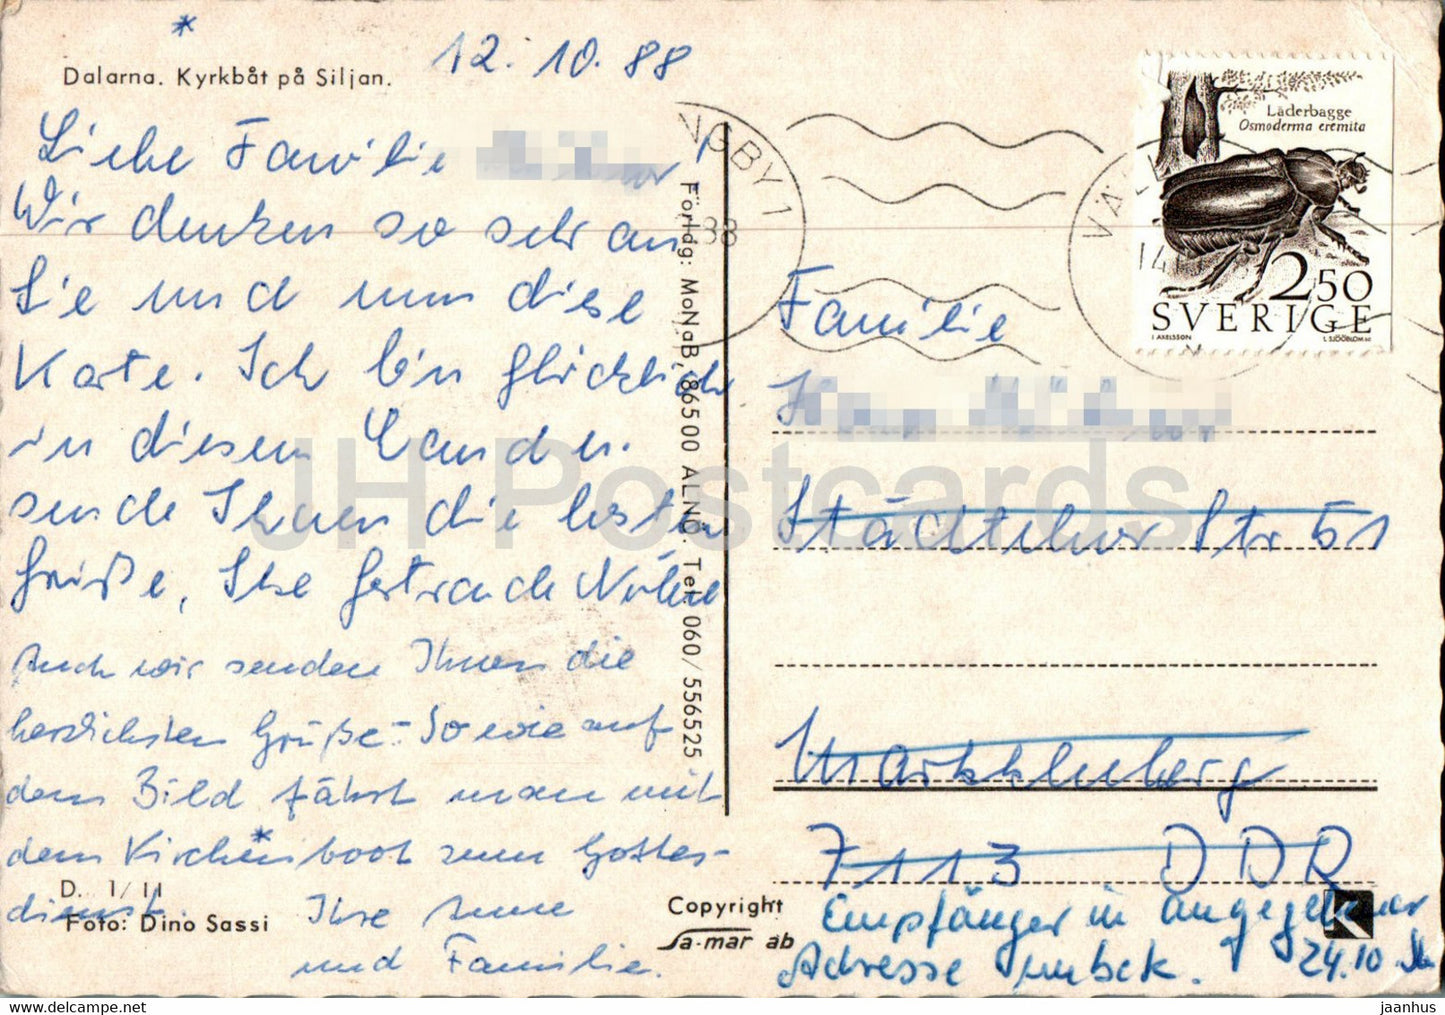 *
Dalarna. Kyrkbåt på Siljan.
12.10.88
Liebe Familie
Wir denken so sehr an
Sie und nun diese
Karte. Ich bin glücklich
in diesem Lande u.
sende Ihnen die besten
Grüße, Ihre Gertraude
Auch wir senden Ihnen die
herzlichsten Grüße - So wie auf
dem Bild fährt man mit
dem Kirchenboot* zum Gottes-
dienst. Ihre Anne
und Familie.
D. 1/11
Foto: Dino Sassi
Förlag: MoNaB, 86500 ALNÖ. Tel. 060/556525
NGBY 1
88
VÄ
14
Läderbagge
Osmoderma eremita
2.50
SVERIGE
I. AXELSSON
L. SJÖÖBLOM sc
Familie
Städtelner Str 51
Markkleeberg
7113 DDR
Empfänger in angegebener
Adresse unbek.
24.10
Copyright
sa-mar ab
K
JH Postcards
www.hippostcard.com
jaanhus